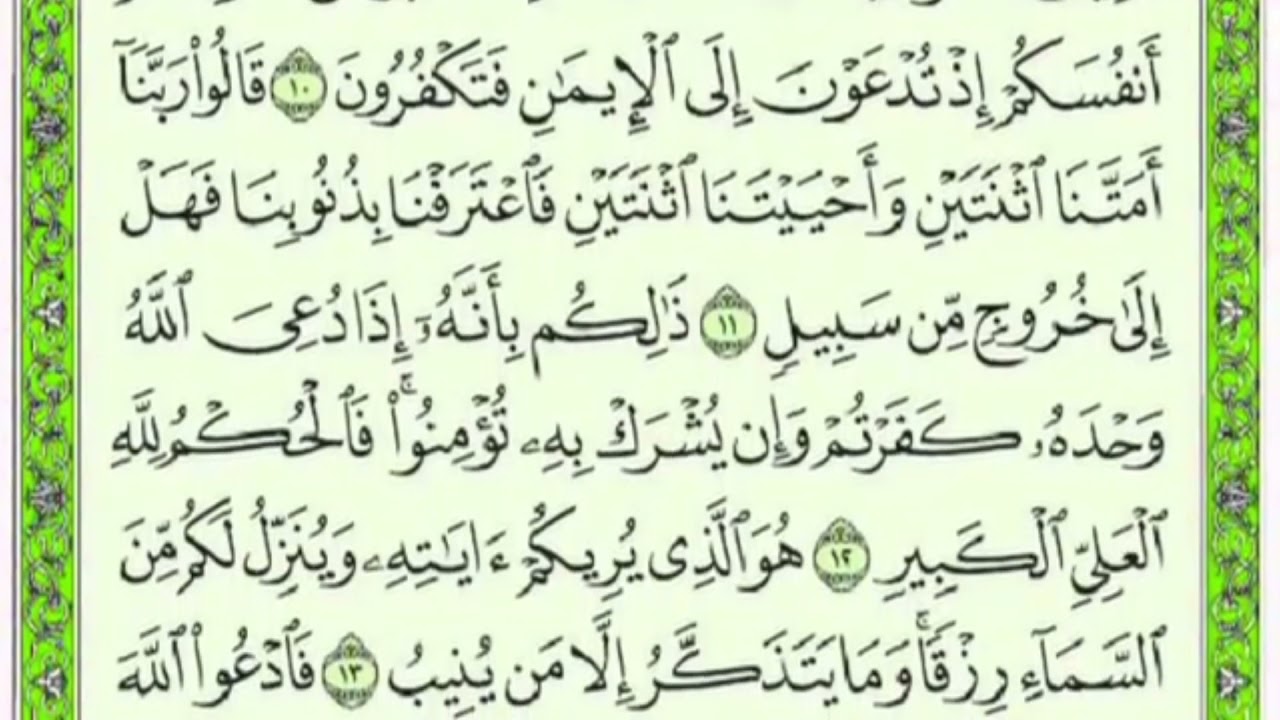 أَنفُسَكُمْ إِذْ تُدْعَوْنَ إِلَى ٱلْإِيمَٰنِ فَتَكْفُرُونَ ١٠ قَالُوا۟ رَبَّنَآ
أَمَتَّنَا ٱثْنَتَيْنِ وَأَحْيَيْتَنَا ٱثْنَتَيْنِ فَٱعْتَرَفْنَا بِذُنُوبِنَا فَهَلْ
إِلَىٰ خُرُوجٍ مِّن سَبِيلٍ ١١ ذَٰلِكُم بِأَنَّهُۥٓ إِذَا دُعِىَ ٱللَّهُ
وَحْدَهُۥ كَفَرْتُمْ وَإِن يُشْرَكْ بِهِۦ تُؤْمِنُوا۟ۚ فَٱلْحُكْمُ لِلَّهِ
ٱلْعَلِىِّ ٱلْكَبِيرِ ١٢ هُوَ ٱلَّذِى يُرِيكُمْ ءَايَٰتِهِۦ وَيُنَزِّلُ لَكُم مِّنَ
ٱلسَّمَآءِ رِزْقًاۚ وَمَا يَتَذَكَّرُ إِلَّا مَن يُنِيبُ ١٣ فَٱدْعُوا۟ ٱللَّهَ